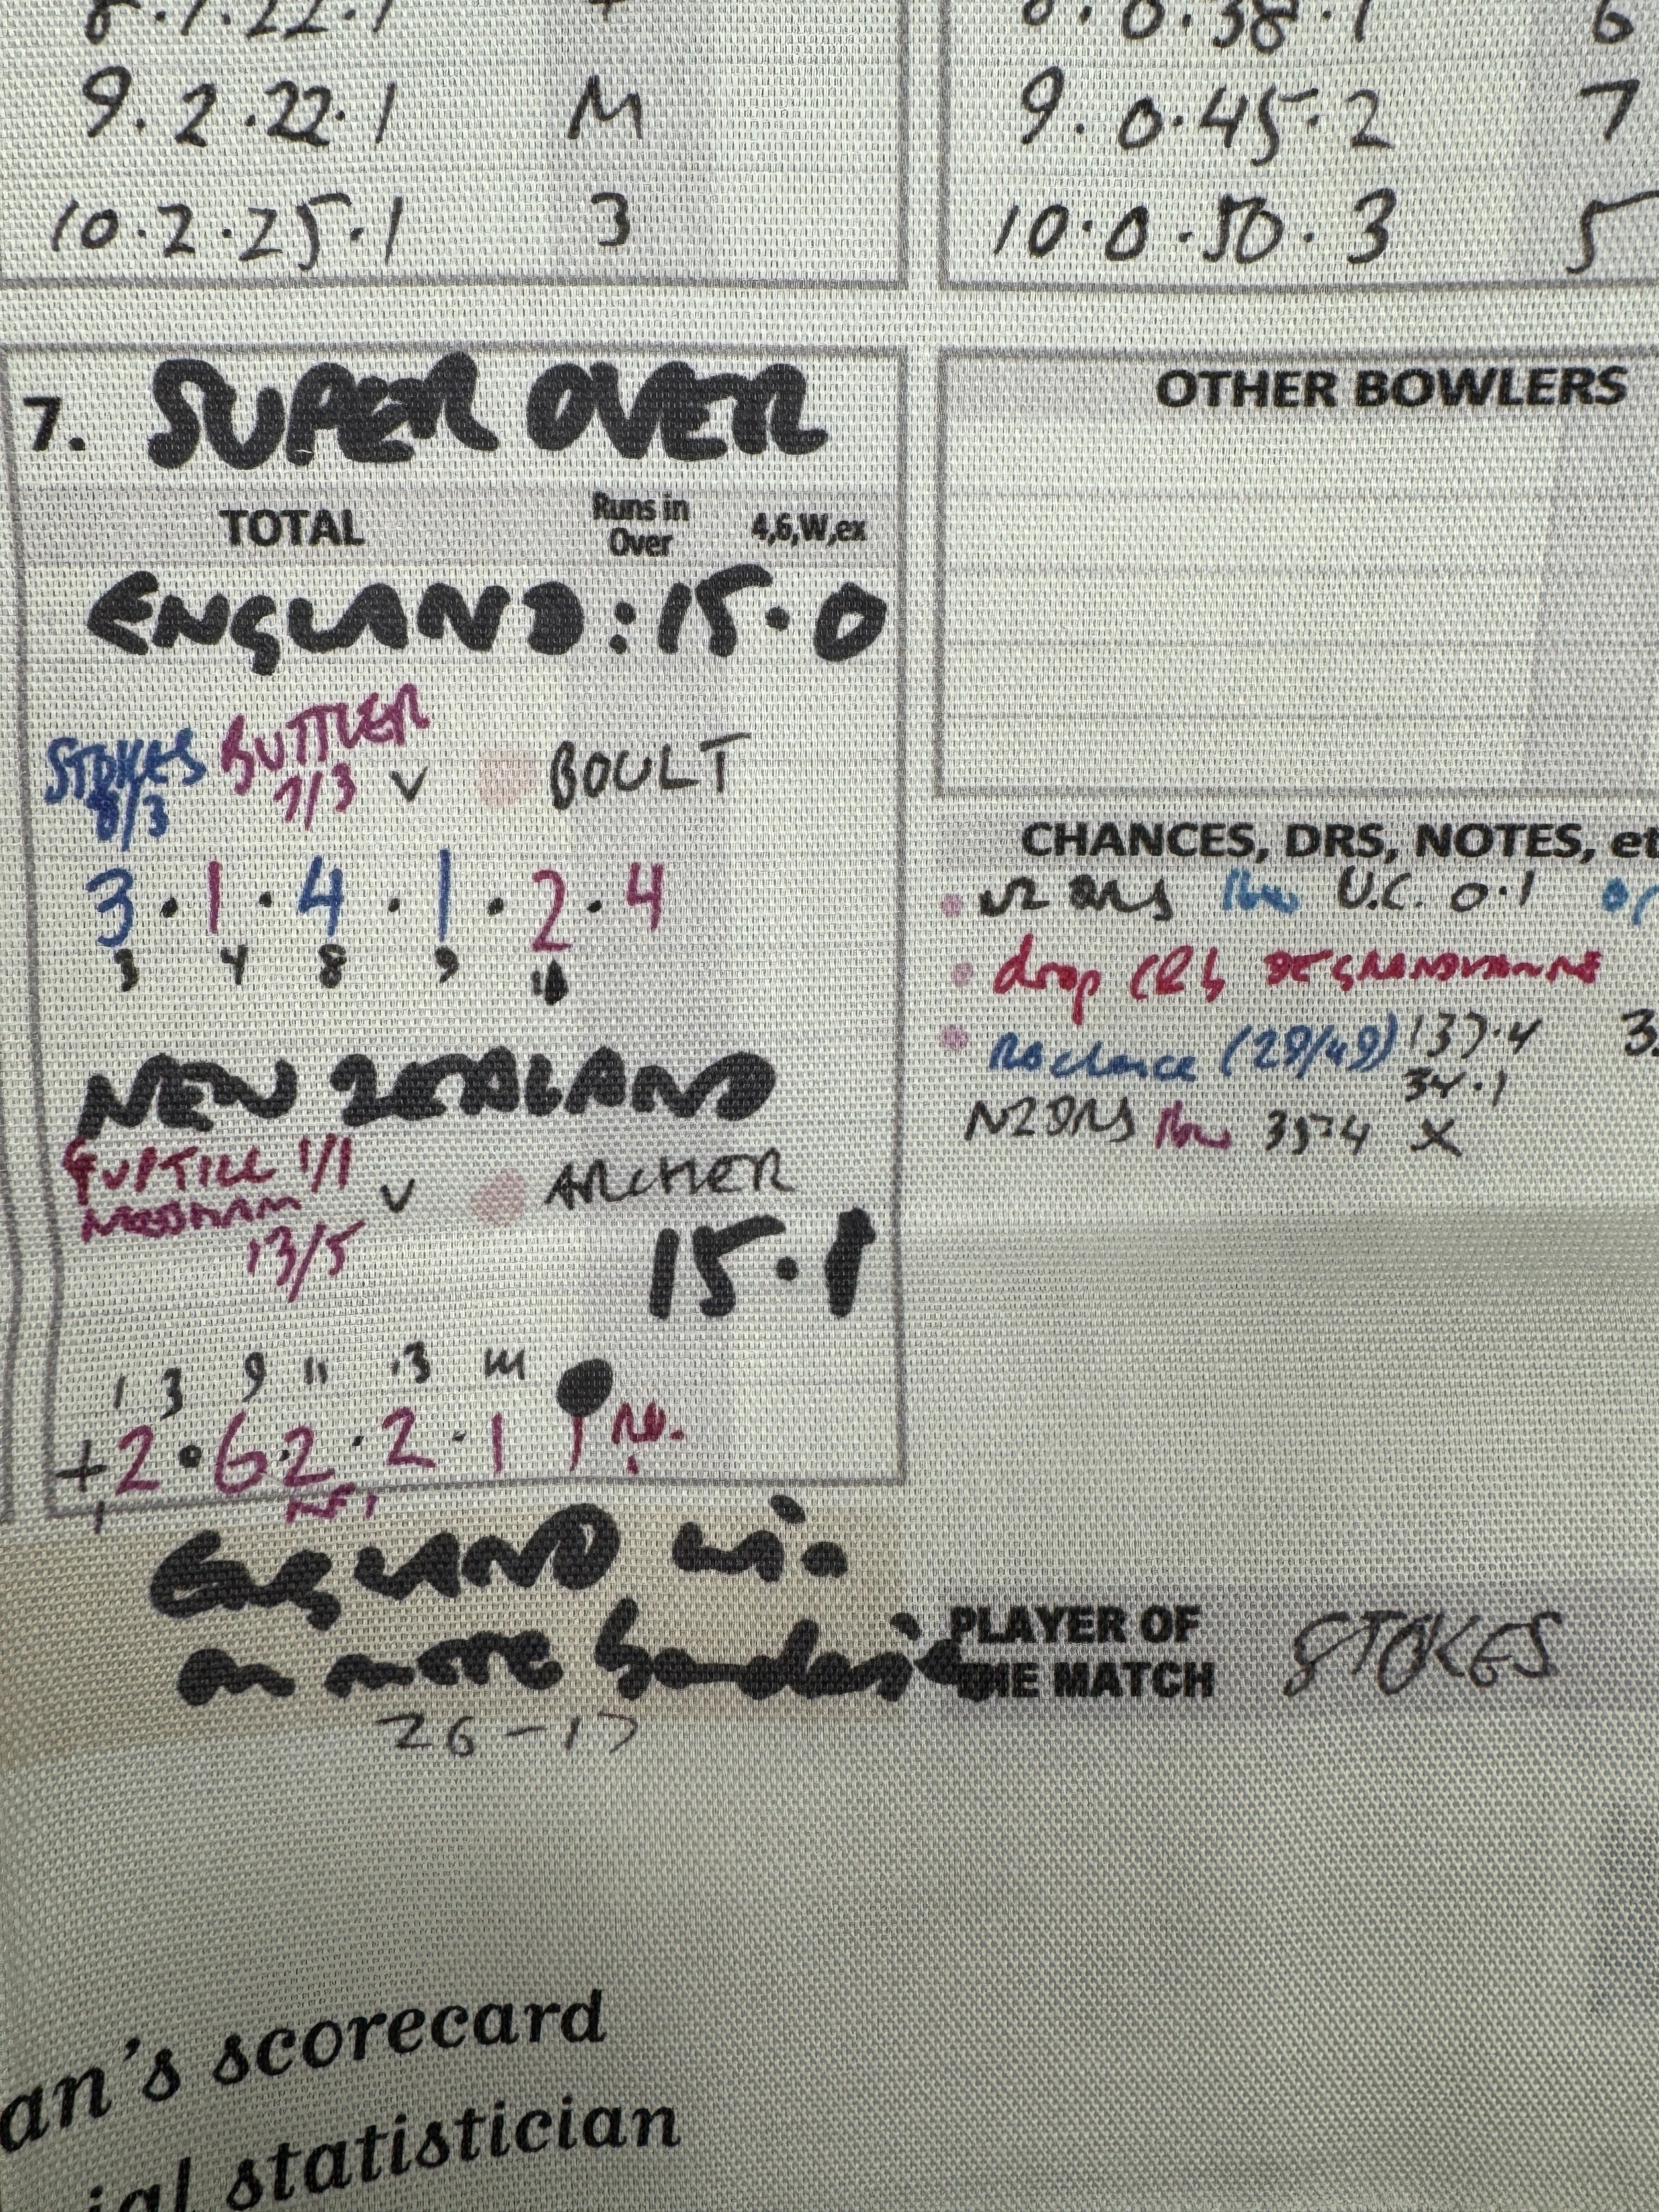 9.2.22.1 M
10.2.25.1 3
0.38.1 6
9.0.45.2 7
10.0.50.3 5
7. SUPER OVER
TOTAL Runs in Over 4,6,W,ex
ENGLAND: 15.0
STOKES 8/3 BUTTLER 7/3 v BOULT
3 . 1 . 4 . 1 . 2 . 4
3 4 8 9 11
NEW ZEALAND
GUPTILL 1/1
NEESHAM 13/5 v ARCHER
15.1
1 3 9 11 13 14
+ 2 . 6 2 . 2 . 1 1 R.O.
1
ENGLAND win
on more boundaries
26-17
OTHER BOWLERS
CHANCES, DRS, NOTES, et
NZ DRS lbw U.C. 0.1
drop C&b DE GRANDHOMME
RO chance (29/49) 137.4 3
34.1
NZ DRS lbw 35.4 X
PLAYER OF THE MATCH STOKES
an's scorecard
ial statistician